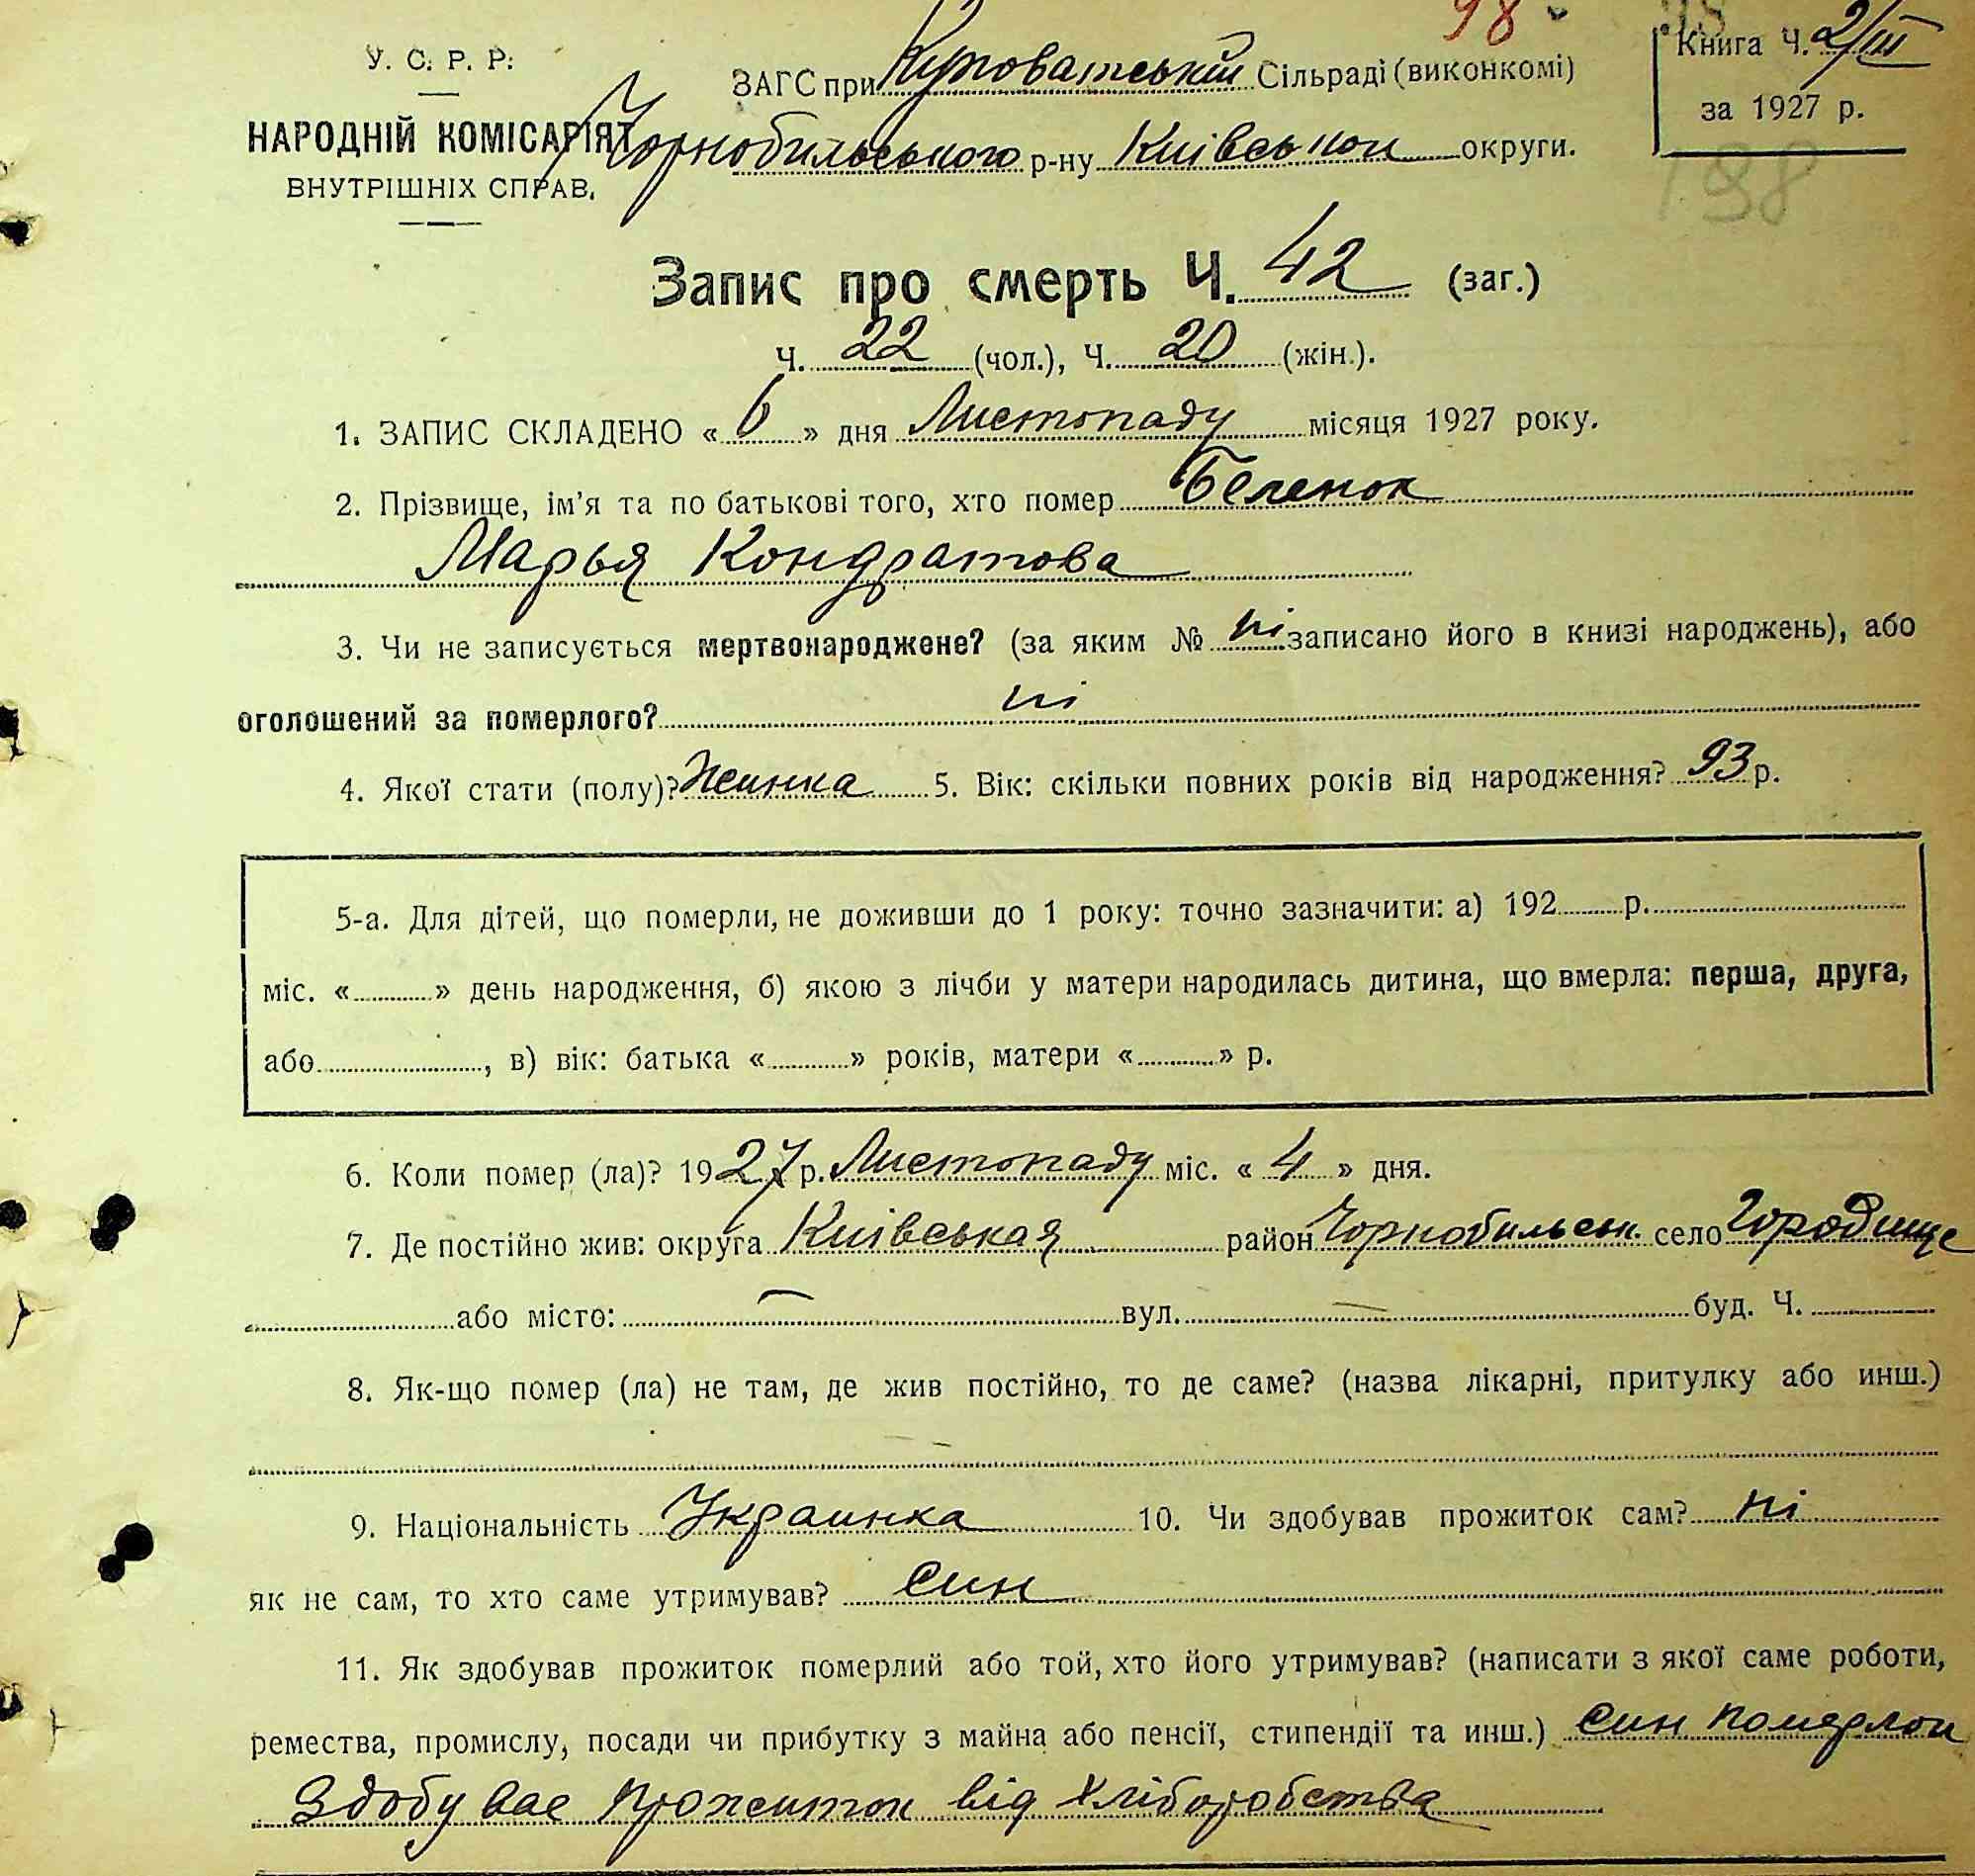 98
У. С. Р. Р.
НАРОДНІЙ КОМІСАРІЯТ
ВНУТРІШНІХ СПРАВ.
ЗАГС при Куповатській Сільраді (виконкомі)
Чорнобильського р-ну Київськои округи.
Книга Ч. 2/III
за 1927 р.
198
Запис про смерть Ч. 42 (заг.)
Ч. 22 (чол.), Ч. 20 (жін.).
1. ЗАПИС СКЛАДЕНО « 6 » дня Листопаду місяця 1927 року.
2. Прізвище, ім’я та по батькові того, хто помер Беленок
Марья Кондратова
3. Чи не записується мертвонароджене? (за яким № ні записано його в книзі народжень), або
оголошений за померлого? ні
4. Якої стати (полу)? Жинка 5. Вік: скільки повних років від народження? 93 р.
5-а. Для дітей, що померли, не доживши до 1 року: точно зазначити: а) 192 р.
міс. « » день народження, б) якою з лічби у матери народилась дитина, що вмерла: перша, друга,
або , в) вік: батька « » років, матери « » р.
6. Коли помер (ла)? 1927 р. Листопаду міс. « 4 » дня.
7. Де постійно жив: округа Київськая район Чорнобильськ. село Городище
або місто: — вул. — буд. Ч.
8. Як-що помер (ла) не там, де жив постійно, то де саме? (назва лікарні, притулку або инш.)
9. Національність Украинка 10. Чи здобував прожиток сам? ні
як не сам, то хто саме утримував? син
11. Як здобував прожиток померлий або той, хто його утримував? (написати з якої саме роботи,
ремества, промислу, посади чи прибутку з майна або пенсії, стипендії та инш.) син померлои
здобувае прожиток від хліборобства